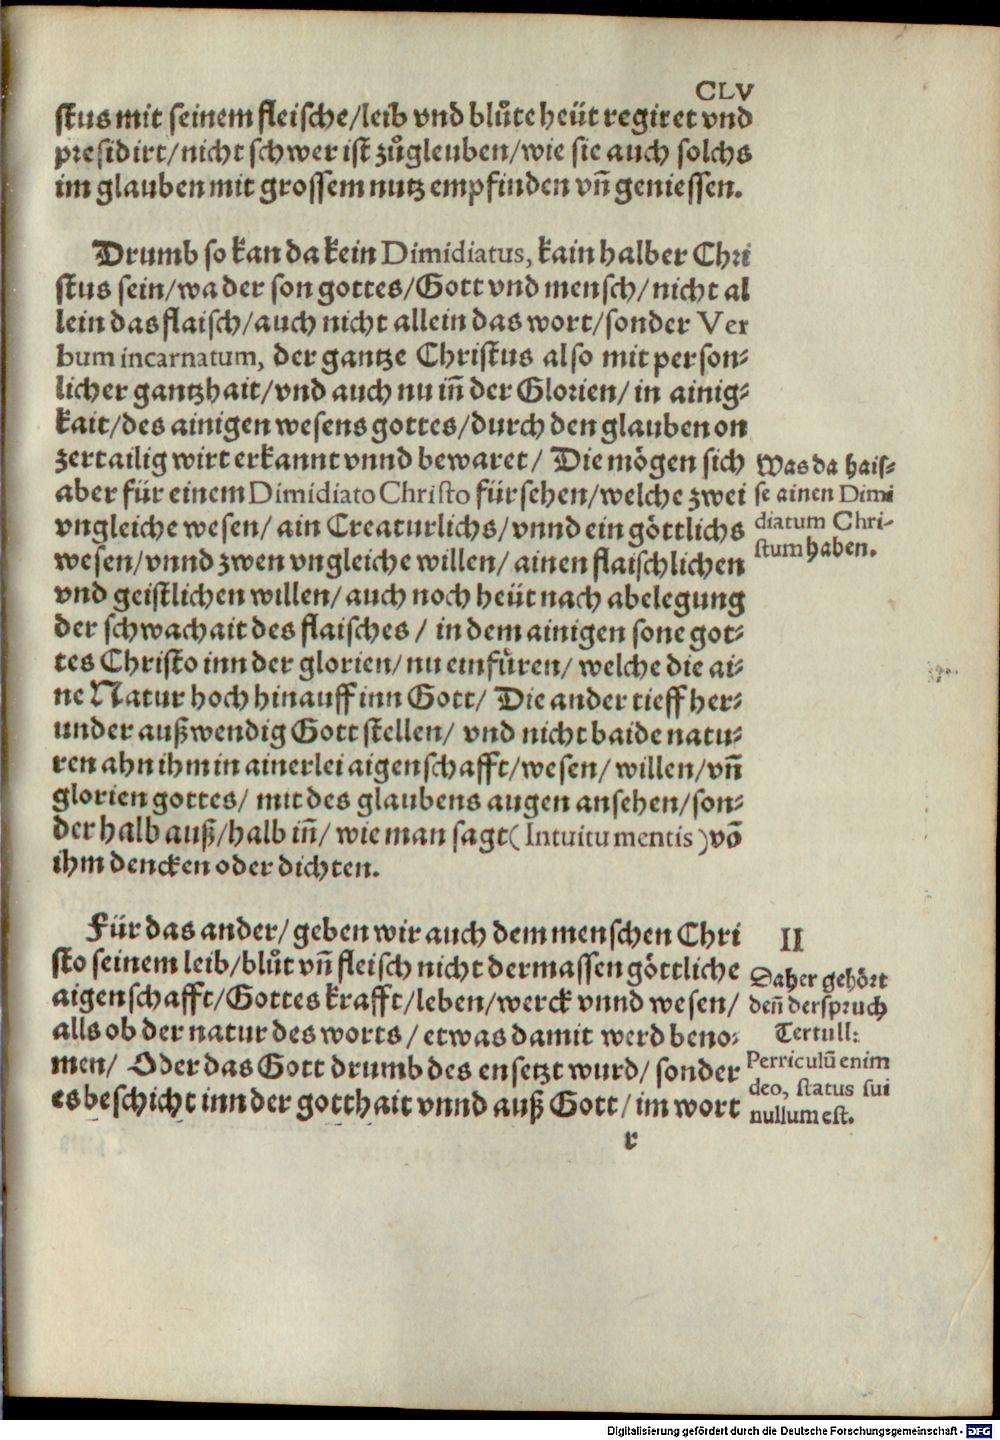 CLV
stus mit seinem fleische/leib vnd blůte heüt regiret vnd
presidirt/nicht schwer ist zůgleuben/wie sie auch solchs
im glauben mit grossem nutz empfinden vñ geniessen.
Drumb so kan da kein Dimidiatus, kain halber Chri
stus sein/wa der son gottes/Gott vnd mensch/nicht al
lein das flaisch/auch nicht allein das wort/sonder Ver
bum incarnatum, der gantze Christus also mit person-
licher gantzhait/vnd auch nu iñ der Glorien/ in ainig-
kait/des ainigen wesens gottes/durch den glauben on
zertailig wirt erkannt vnnd bewaret/ Die mögen sich
aber für einem Dimidiato Christo fürsehen/welche zwei
vngleiche wesen/ ain Creaturlichs/vnnd ein göttlichs
wesen/vnnd zwen vngleiche willen/ ainen flaischlichen
vnd geistlichen willen/ auch noch heüt nach abelegung
der schwachait des flaisches/ in dem ainigen sone got-
tes Christo inn der glorien/ nu einfüren/ welche die ai-
ne Natur hoch hinauff inn Gott/ Die ander tieff her-
under außwendig Gott stellen/ vnd nicht baide natu-
ren ahn ihm in ainerlei aigenschafft/wesen/ willen/vñ
glorien gottes/ mit des glaubens augen ansehen/son-
der halb auß/halb iñ/ wie man sagt (Intuitu mentis) võ
ihm dencken oder dichten.
Was da hais-
se ainen Dimi
diatum Chri-
stum haben.
Für das ander/ geben wir auch dem menschen Chri
sto seinem leib/blůt vñ fleisch nicht dermassen göttliche
aigenschafft/Gottes krafft/leben/werck vnnd wesen/
alls ob der natur des worts/ etwas damit werd beno-
men/ Oder das Gott drumb des ensetzt wurd/ sonder
es beschicht inn der gotthait vnnd auß Gott/im wort
II
Daher gehört
deñ der spruch
Tertull:
Perriculũ enim
deo, status sui
nullum est.
r
Digitalisierung gefördert durch die Deutsche Forschungsgemeinschaft - DFG